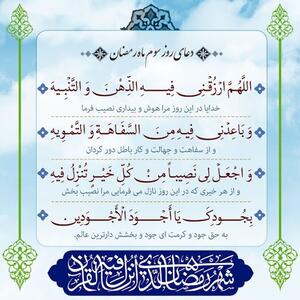 دعای روز سوم ماه رمضان
اللَّهُمَّ ارْزُقْنِي فِيهِ الذِّهْنَ وَ التَّنْبِيهَ
خدایا در این روز مرا هوش و بیداری نصیب فرما
وَ بَاعِدْنِي فِيهِ مِنَ السَّفَاهَةِ وَ التَّمْوِيهِ
و از سفاهت و جهالت و کار باطل دور گردان
وَ اجْعَلْ لِي نَصِيباً مِنْ كُلِّ خَيْرٍ تُنْزِلُ فِيهِ
و از هر خیری که در این روز نازل می فرمایی مرا نصیب بخش
بِجُودِكَ يَا أَجْوَدَ الْأَجْوَدِينَ
به حق جود و کرمت ای جود و بخشش دارترین عالم.
شهر رمضان الذی انزل فیه القرآن